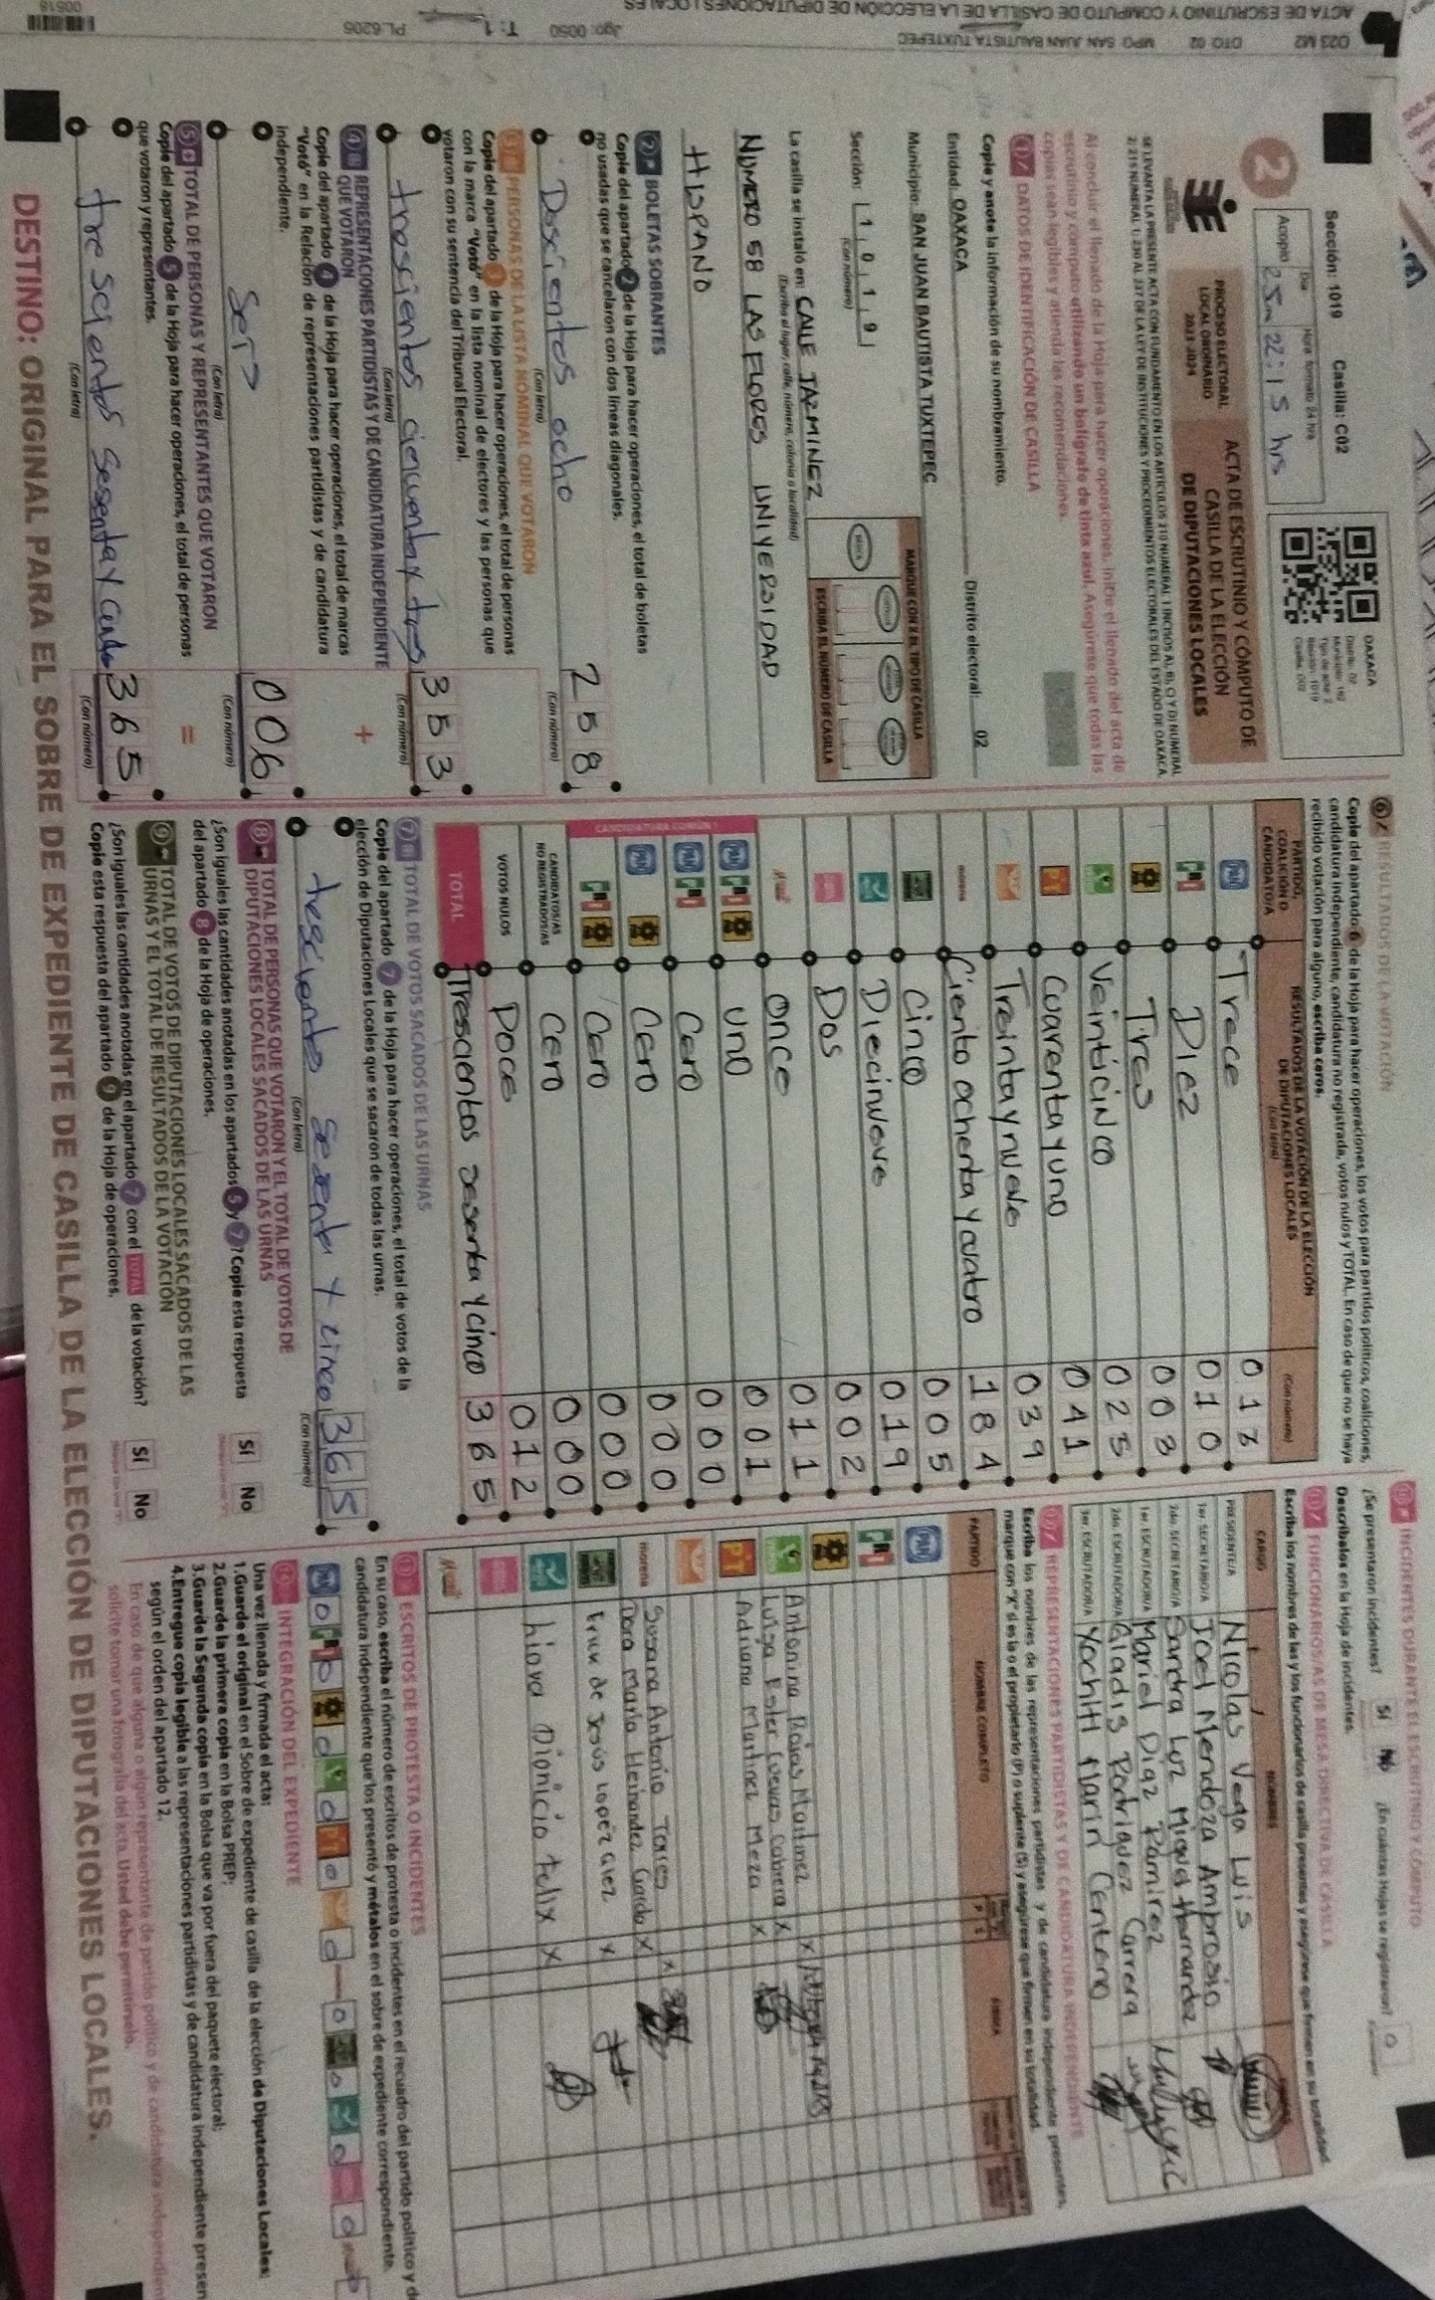 Sección: 1019 Casilla: C02
Día Hora formato 24 hrs
Acopio 25m 22:15 hrs
OAXACA
2
PROCESO ELECTORAL
LOCAL ORDINARIO
2023-2024
ACTA DE ESCRUTINIO Y CÓMPUTO DE
CASILLA DE LA ELECCIÓN
DE DIPUTACIONES LOCALES
Al concluir el llenado de la Hoja para hacer operaciones, inicie el llenado del acta de
escrutinio y cómputo utilizando un bolígrafo de tinta azul. Asegúrese que todas las
copias sean legibles y atienda las recomendaciones.
1 DATOS DE IDENTIFICACIÓN DE CASILLA
Copie y anote la información de su nombramiento.
Entidad: OAXACA Distrito electoral: 02
Municipio: SAN JUAN BAUTISTA TUXTEPEC
Sección: 1019
(Con número)
MARQUE CON X EL TIPO DE CASILLA
ESCRIBA EL NÚMERO DE CASILLA
La casilla se instaló en: CALLE JAZMINEZ
(Escriba el lugar, calle, número, colonia o localidad)
NUMERO 58 LAS FLORES UNIVERSIDAD
HISPANO
2 BOLETAS SOBRANTES
Copie del apartado 2 de la Hoja para hacer operaciones, el total de boletas
no usadas que se cancelaron con dos líneas diagonales.
Doscientos ocho 258
(Con letra) (Con número)
3 PERSONAS DE LA LISTA NOMINAL QUE VOTARON
Copie del apartado 3 de la Hoja para hacer operaciones, el total de personas
con la marca "Votó" en la lista nominal de electores y las personas que
votaron con su sentencia del Tribunal Electoral.
trescientos cincuenta y tres 353
(Con letra) (Con número)
4 REPRESENTACIONES PARTIDISTAS Y DE CANDIDATURA INDEPENDIENTE
QUE VOTARON +
Copie del apartado 4 de la Hoja para hacer operaciones, el total de marcas
"Votó" en la Relación de representaciones partidistas y de candidatura
independiente.
Seis 006
(Con letra) (Con número)
5 TOTAL DE PERSONAS Y REPRESENTANTES QUE VOTARON =
Copie del apartado 5 de la Hoja para hacer operaciones, el total de personas
que votaron y representantes.
trescientos sesenta y 365
(Con letra) (Con número)
6 RESULTADOS DE LA VOTACIÓN
Copie del apartado 6 de la Hoja para hacer operaciones, los votos para partidos políticos, coaliciones,
candidatura independiente, candidatura no registrada, votos nulos y TOTAL. En caso de que no se haya
recibido votación para alguno, escriba ceros.
PARTIDO, COALICIÓN O CANDIDATO/A
RESULTADOS DE LA VOTACIÓN DE LA ELECCIÓN DE DIPUTACIONES LOCALES
(Con letra) (Con número)
PAN Trece 013
PRI Diez 010
Tres 003
Veinticinco 025
PT Cuarenta y uno 041
Treinta y nueve 039
morena Ciento ochenta y cuatro 184
Cinco 005
Diecinueve 019
Dos 002
Once 011
CANDIDATURA COMÚN
PAN PRI Uno 001
PAN PRI Cero 000
PAN Cero 000
PRI Cero 000
CANDIDATOS/AS NO REGISTRADOS/AS Cero 000
VOTOS NULOS Doce 012
TOTAL Trescientos sesenta y cinco 365
7 TOTAL DE VOTOS SACADOS DE LAS URNAS
Copie del apartado 7 de la Hoja para hacer operaciones, el total de votos de la
elección de Diputaciones Locales que se sacaron de todas las urnas.
y cinco 365
(Con letra) (Con número)
8 TOTAL DE PERSONAS QUE VOTARON Y EL TOTAL DE VOTOS DE
DIPUTACIONES LOCALES SACADOS DE LAS URNAS
¿Son iguales las cantidades anotadas en los apartados 5 y 7? Copie esta respuesta
del apartado 8 de la Hoja de operaciones. Sí No
9 TOTAL DE VOTOS DE DIPUTACIONES LOCALES SACADOS DE LAS
URNAS Y EL TOTAL DE RESULTADOS DE LA VOTACIÓN
¿Son iguales las cantidades anotadas en el apartado 7 con el TOTAL de la votación?
Copie esta respuesta del apartado 9 de la Hoja de operaciones. Sí No
10 INCIDENTES DURANTE EL ESCRUTINIO Y CÓMPUTO
¿Se presentaron incidentes? Sí No ¿En cuántas Hojas se registraron? 0
Descríbalos en la Hoja de incidentes.
11 FUNCIONARIOS/AS DE MESA DIRECTIVA DE CASILLA
Escriba los nombres de las y los funcionarios de casilla presentes y asegúrese que firmen en su totalidad.
CARGO NOMBRES
PRESIDENTE/A Nicolas Vega Luis
1er. SECRETARIO/A Joel Mendoza Ambrosio
2do. SECRETARIO/A Sandra Luz Miguel Hernandez
1er. ESCRUTADOR/A Mariel Diaz Ramirez
2do. ESCRUTADOR/A Gladis Rodriguez Carrera
3er. ESCRUTADOR/A Marin Centeno
12 REPRESENTACIONES PARTIDISTAS Y DE CANDIDATURA INDEPENDIENTE
Escriba los nombres de las representaciones partidistas y de candidatura independiente presentes,
marque con "X" si es la o el propietario (P) o suplente (S) y asegúrese que firmen en su totalidad.
PARTIDO NOMBRE COMPLETO P S FIRMA
PAN
PRI
Antonina Rojas Martinez X
Luisa Ester Cuevas Cabrera X
PT Adriana Martinez Meza X
Susana Antonio Torres X
morena Dora Maria Hernandez X
Erick de Jesús Lopez X
Dionicio Felix X
13 ESCRITOS DE PROTESTA O INCIDENTES
En su caso, escriba el número de escritos de protesta o incidentes en el recuadro del partido político y de
candidatura independiente que los presentó y métalos en el sobre de expediente correspondiente.
14 INTEGRACIÓN DEL EXPEDIENTE
Una vez llenada y firmada el acta:
1.Guarde el original en el Sobre de expediente de casilla de la elección de Diputaciones Locales;
2.Guarde la primera copia en la Bolsa PREP;
3.Guarde la Segunda copia en la Bolsa que va por fuera del paquete electoral;
4.Entregue copia legible a las representaciones partidistas y de candidatura independiente
según el orden del apartado 12.
En caso de que alguna o algún representante de partido político y de candidatura independiente
solicite tomar una fotografía del acta, Usted debe permitírselo.
DESTINO: ORIGINAL PARA EL SOBRE DE EXPEDIENTE DE CASILLA DE LA ELECCIÓN DE DIPUTACIONES LOCALES.
ACTA DE ESCRUTINIO Y COMPUTO DE CASILLA DE LA ELECCIÓN DE DIPUTACIONES LOCALES
D23 M2 DTO: 02 MPO: SAN JUAN BAUTISTA TUXTEPEC Jgo: 0050 T: 1 PL:6205
00518